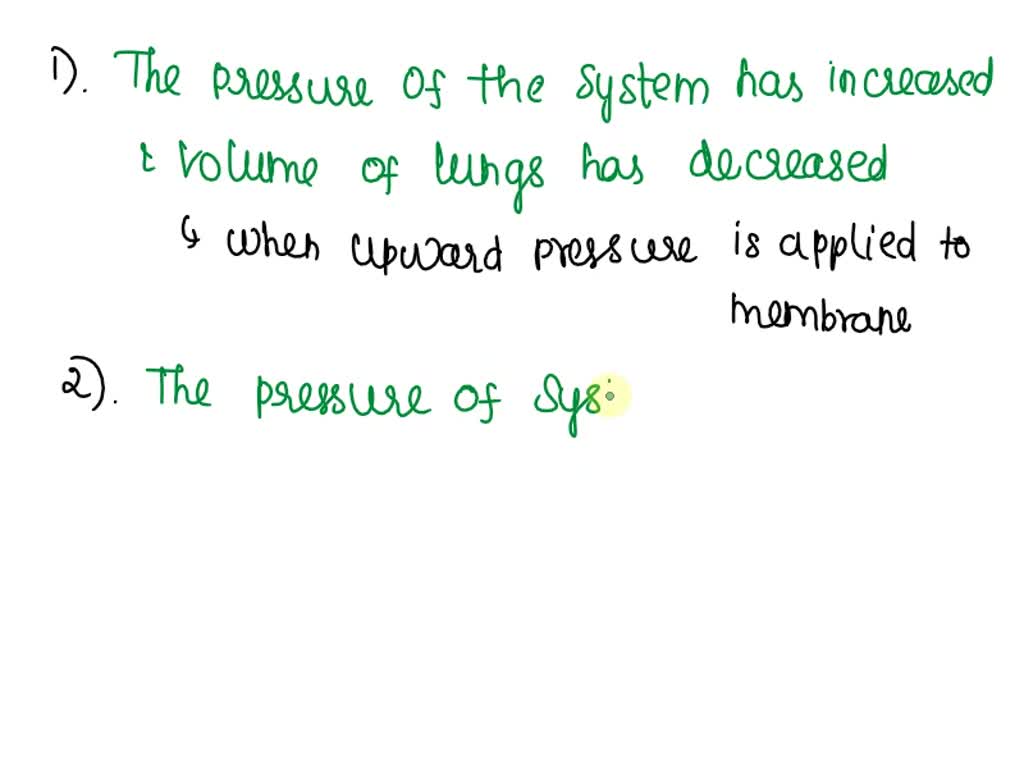 1). The pressure of the system has increased
& volume of lungs has decreased
↳ when upward pressure is applied to
membrane
2). The pressure of Sys